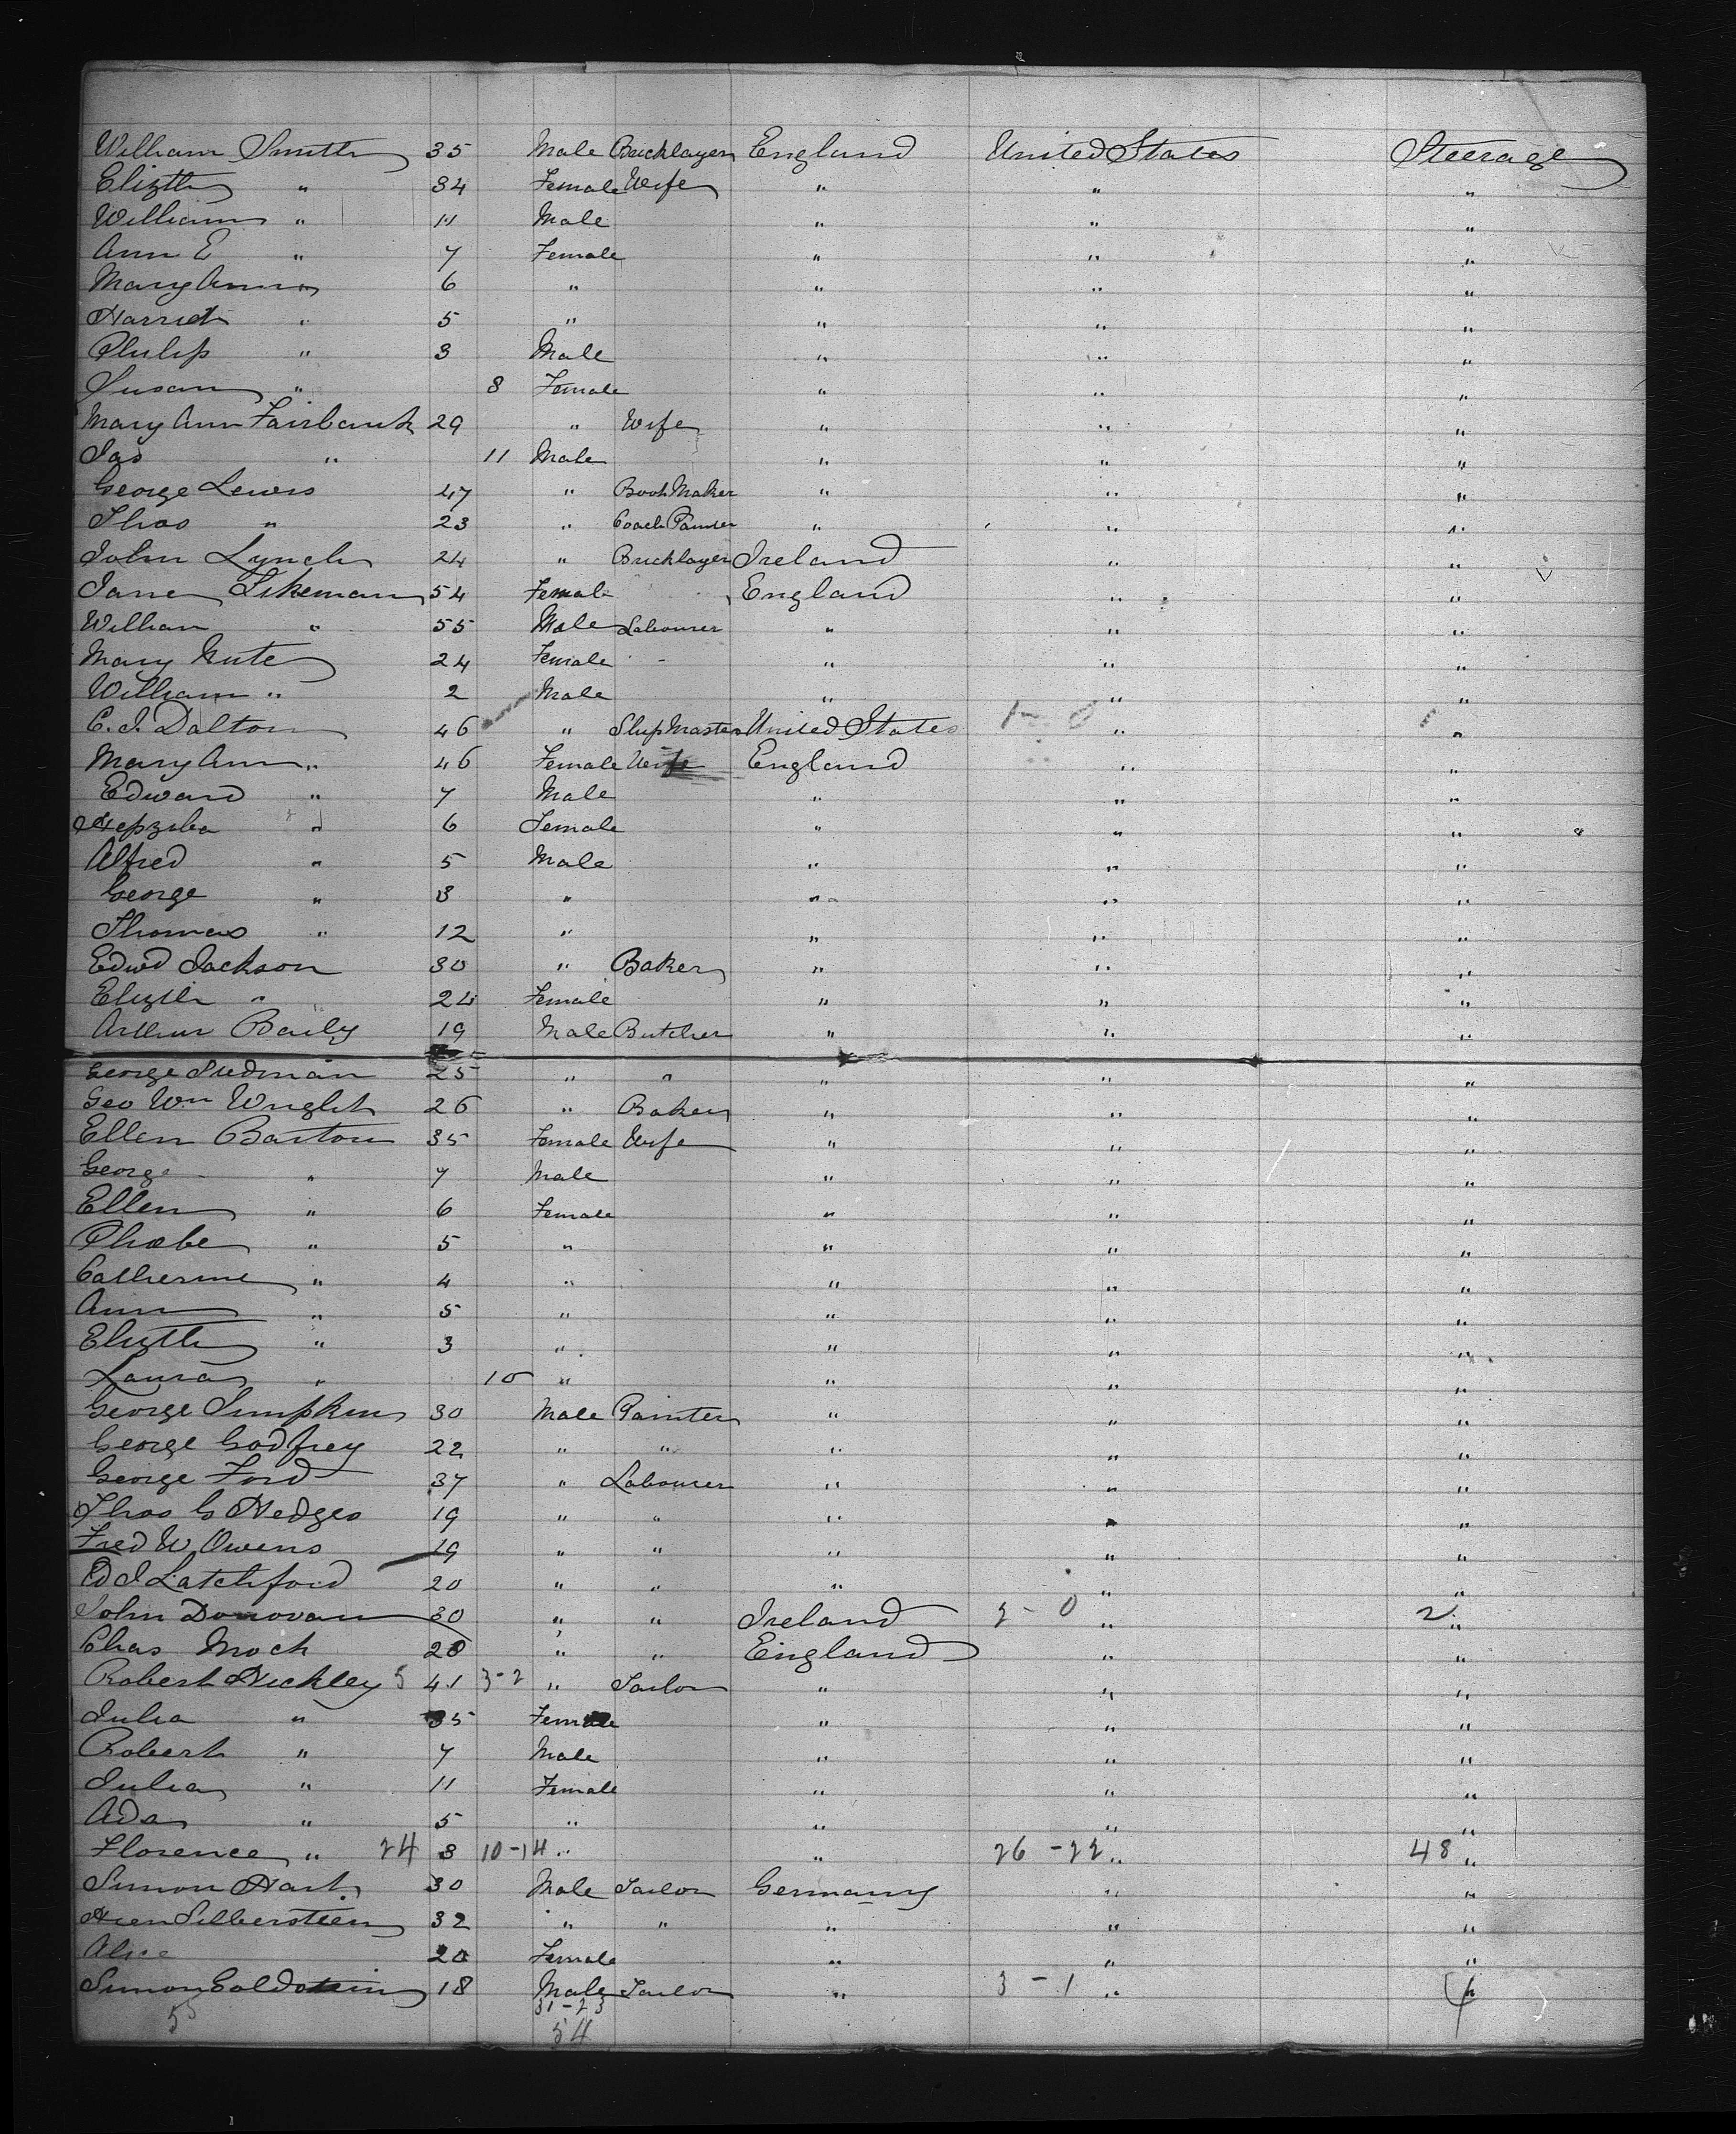 William Smith 35 Male Bricklayer England United States Steerage
Elizth " 34 Female Wife " " "
William " 11 Male " " "
Ann E " 7 Female " " "
Mary Ann " 6 " " " "
Harriet " 5 " " " "
Philip " 3 Male " " "
Susan " 8 Female " " "
Mary Ann Fairbank 29 " Wife " " "
Jas " 11 Male " " "
George Lewis 47 " Book Maker " " "
Thos " 23 " Coach Painter " " "
John Lynch 24 " Bricklayer Ireland " "
Jane Likeman 54 Female England " "
William " 55 Male Labourer " " "
Mary Nute 24 Female - " " "
William " 2 Male " " "
C. J. Dalton 46 " Ship Master United States 1 - 0 " 1 "
Mary Ann " 46 Female Wife England " "
Edward " 7 Male " " "
Hepziba " 6 Female " " "
Alfred " 5 Male " " "
George " 3 " " " "
Thomas " 12 " " " "
Edwd Jackson 30 " Baker " " "
Elizth " 24 Female " " "
Arthur Baily 19 Male Butcher " " "
George Stedman 25 " " " " "
Geo Wm Wright 26 " Baker " " "
Ellen Barton 35 Female Wife " " "
George " 7 Male " " "
Ellen " 6 Female " " "
Phoebe " 5 " " " "
Catherine " 4 " " " "
Ann " 5 " " " "
Elizth " 3 " " " "
Laura " 10 " " " "
George Simpkins 30 Male Painter " " "
George Godfrey 22 " " " " "
George Ford 37 " Labourer " " "
Thos G Hedges 19 " " " " "
Fred W Owens 19 " " " " "
Ed J Latchford 20 " " " " "
John Donovan 30 " " Ireland 2 - 0 " 2 "
Chas Mock 20 " " England " "
Robert Hickley 5 41 3-2 " Tailor " " "
Julia " 35 Female " " "
Robert " 7 Male " " "
Julia " 11 Female " " "
Ada " 5 " " " "
Florence " 24 3 10-14 " " 26 - 22 " 48 "
Simon Hart 30 Male Tailor Germany " "
Silberstein 32 " " " " "
Alice 20 Female " " "
Simon Goldstein 18 Male Tailor " 3 - 1 " 4 "
55 31-23
54